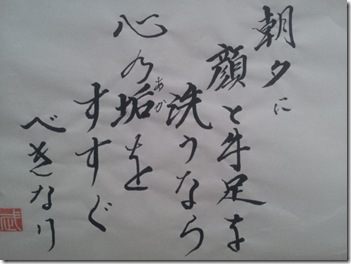 朝夕に
顔と手足を
洗うなら
心の垢を
あか
すすぐ
べきなり